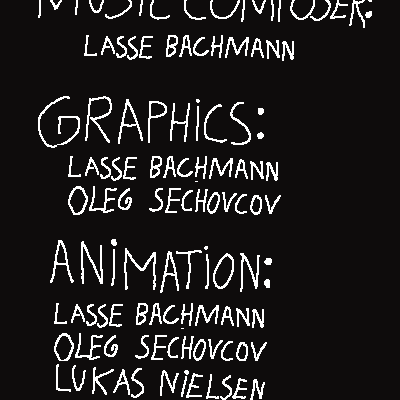 MUSIC COMPOSER:
LASSE BACHMANN
GRAPHICS:
LASSE BACHMANN
OLEG SECHOVCOV
ANIMATION:
LASSE BACHMANN
OLEG SECHOVCOV
LUKAS NIELSEN